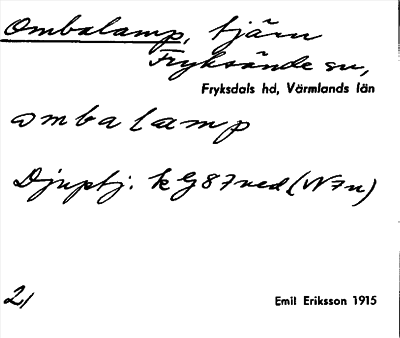 Ombalamp, tjärn
Fryksände sn,
Fryksdals hd, Värmlands län
ombalamp
Djuptj. k G87ned (W7n)
21
Emil Eriksson 1915